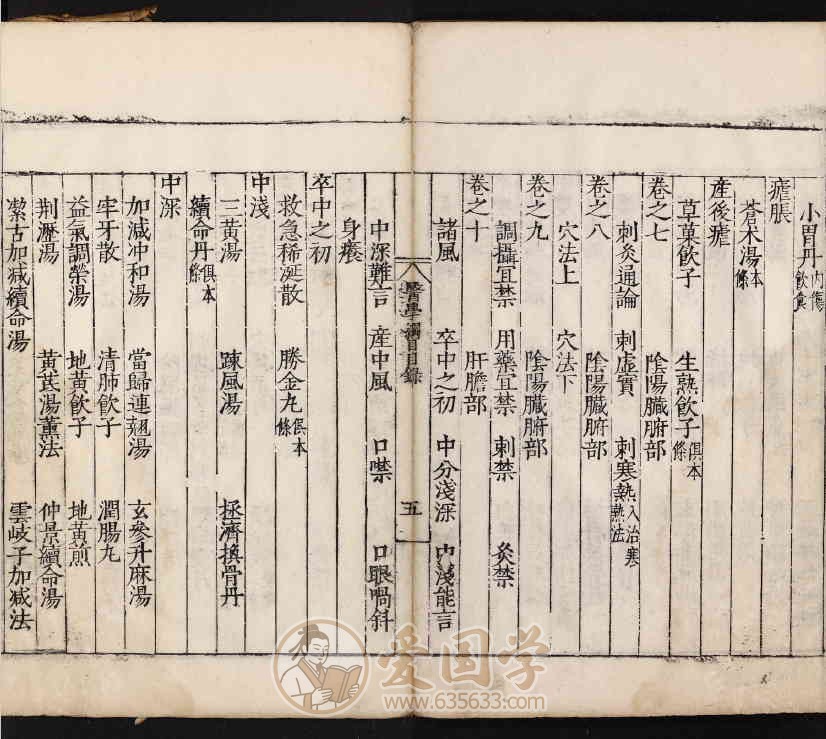 小胃丹内傷飲食
瘧脹
蒼术湯本條
産後瘧
草菓飲子 生熟飲子俱本條
卷之七 陰陽臟腑部
刺灸通論 刺虛實 刺寒熱入治寒熱法
卷之八 陰陽臟腑部
穴法上 穴法下
卷之九 陰陽臟腑部
調攝宜禁 用藥宜禁 刺禁 灸禁
卷之十 肝膽部
諸風 卒中之初 中分淺深 内淺能言
醫學綱目目錄 五
中深難言 産中風 口噤 口眼喎斜
身癢
卒中之初
救急稀涎散 勝金丸俱本條
中淺
三黃湯 踈風湯 拯濟換骨丹
續命丹俱本條
中深
加減冲和湯 當歸連翹湯 玄參升麻湯
牢牙散 清肺飲子 潤腸丸
益氣調榮湯 地黃飲子 地黃煎
荆瀝湯 黃芪湯薰法 仲景續命湯
潔古加减續命湯 雲岐子加减法
爱国学
www.635633.com